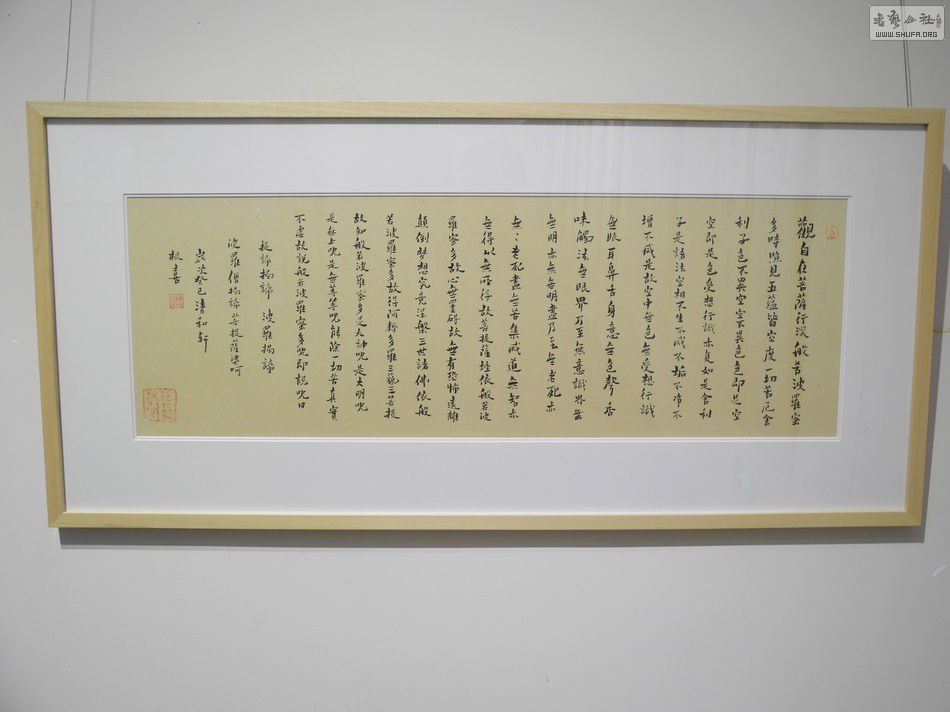 觀自在菩薩行深般若波羅蜜
多時照見五蘊皆空度一切苦厄舍
利子色不異空空不異色色即是空
空即是色受想行識亦復如是舍利
子是諸法空相不生不滅不垢不淨不
增不減是故空中無色無受想行識
無眼耳鼻舌身意無色聲香
味觸法無眼界乃至無意識界無
無明亦無無明盡乃至無老死亦
無老死盡無苦集滅道無智亦
無得以無所得故菩提薩埵依般若波
羅蜜多故心無罣礙故無有恐怖遠離
顛倒夢想究竟涅槃三世諸佛依般
若波羅蜜多故得阿耨多羅三藐三菩提
故知般若波羅蜜多是大神呪是大明呪
是無上呪是無等等呪能除一切苦真實
不虛故說般若波羅蜜多呪即說呪曰
揭諦揭諦 波羅揭諦
波羅僧揭諦 菩提薩婆呵
歲次癸巳清和軒
根喜
書藝公社
WWW.SHUFA.ORG